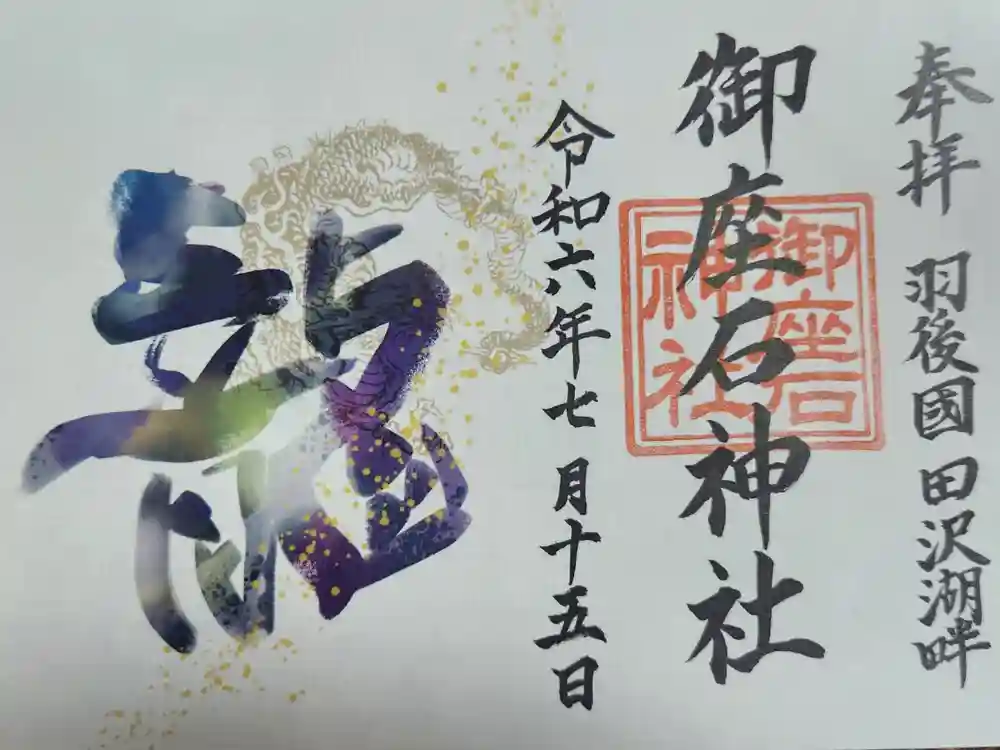 奉拝 羽後國 田沢湖畔
御座石神社
御座石
神社
令和六年七月十五日
龍